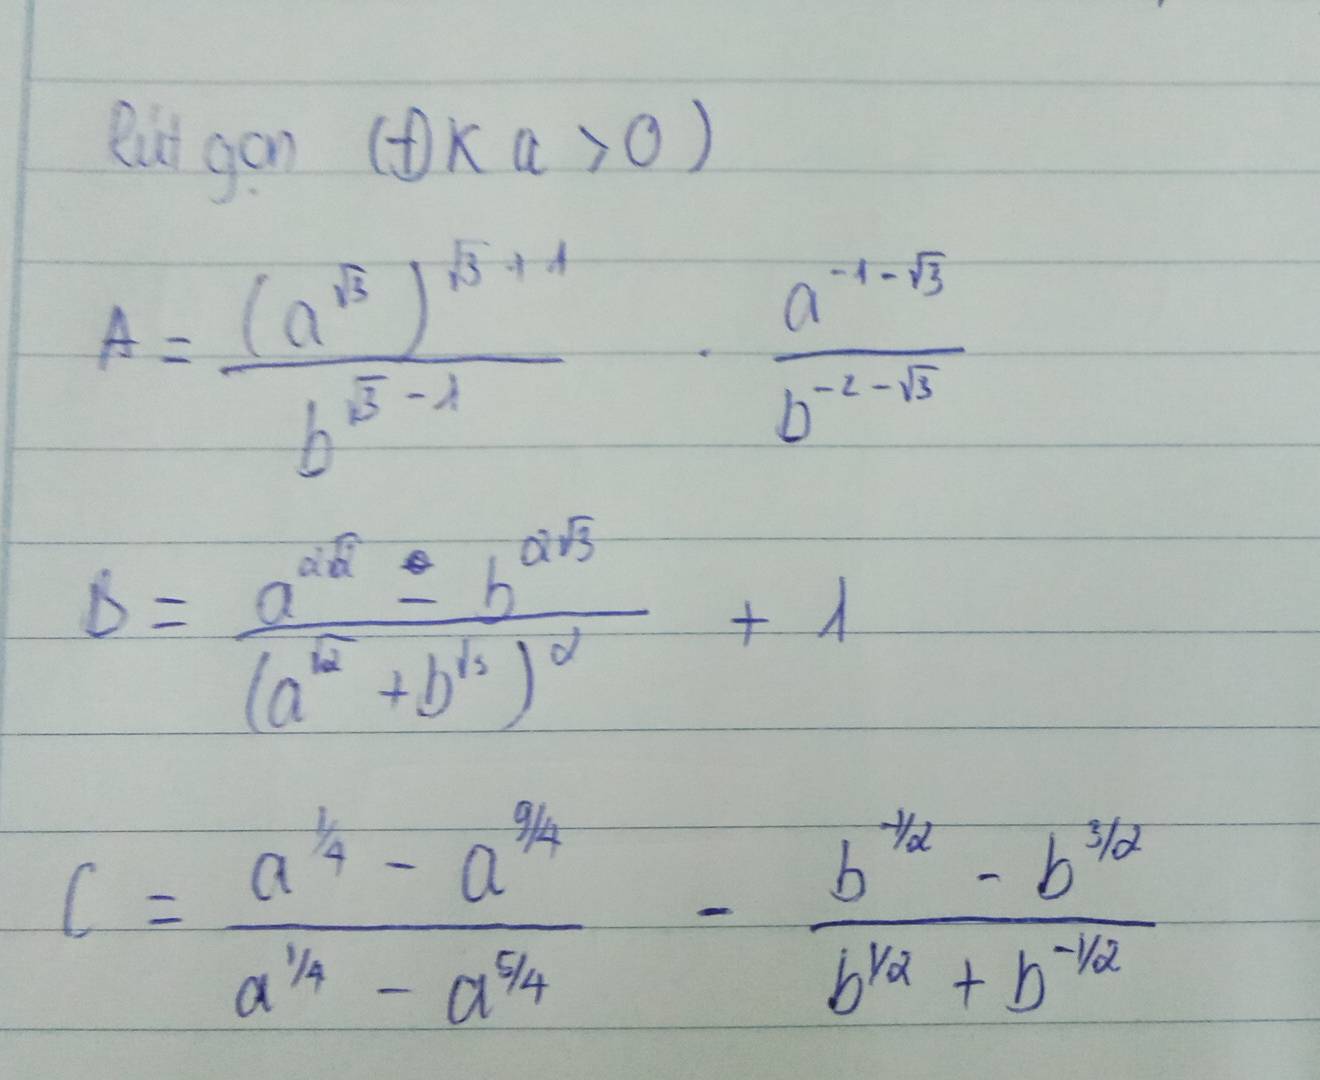 Rút gọn (ĐK a > 0)
A = \frac{(a^{\sqrt{3}})^{\sqrt{3}+1}}{b^{\sqrt{3}-1}} \cdot \frac{a^{-1-\sqrt{3}}}{b^{-2-\sqrt{3}}}
B = \frac{a^{2\sqrt{2}} - b^{2\sqrt{3}}}{(a^{\sqrt{2}} + b^{\sqrt{3}})^2} + 1
C = \frac{a^{1/4} - a^{9/4}}{a^{1/4} - a^{5/4}} - \frac{b^{-1/2} - b^{3/2}}{b^{1/2} + b^{-1/2}}